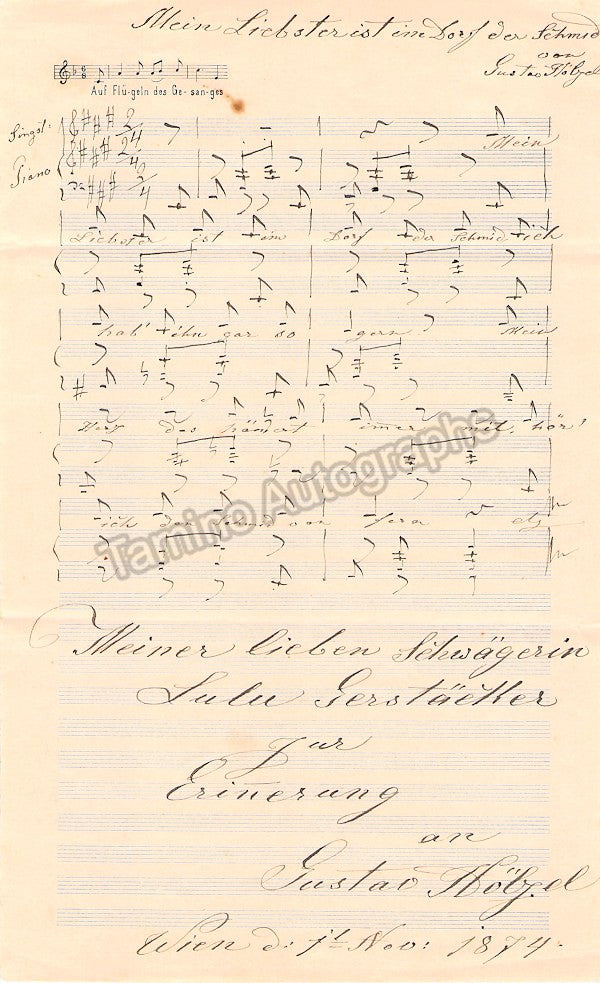 Mein Liebster ist im Dorf der Schmid
von
Gustav Hölzel
Auf Flü-geln des Ge-san-ges
Singst:
Piano
2/4
2/4
2/4
Mein
Liebster ist im Dorf der Schmid ich
hab' ihn gar so gern Mein
Herz das hämert imer mit, hör'
ich den Schmid von fern etz
Tamino Autographs
Meiner lieben Schwägerin
Lulu Gerstäcker
zur
Erinerung
an
Gustav Hölzel
Wien d: 1t Nov: 1874.